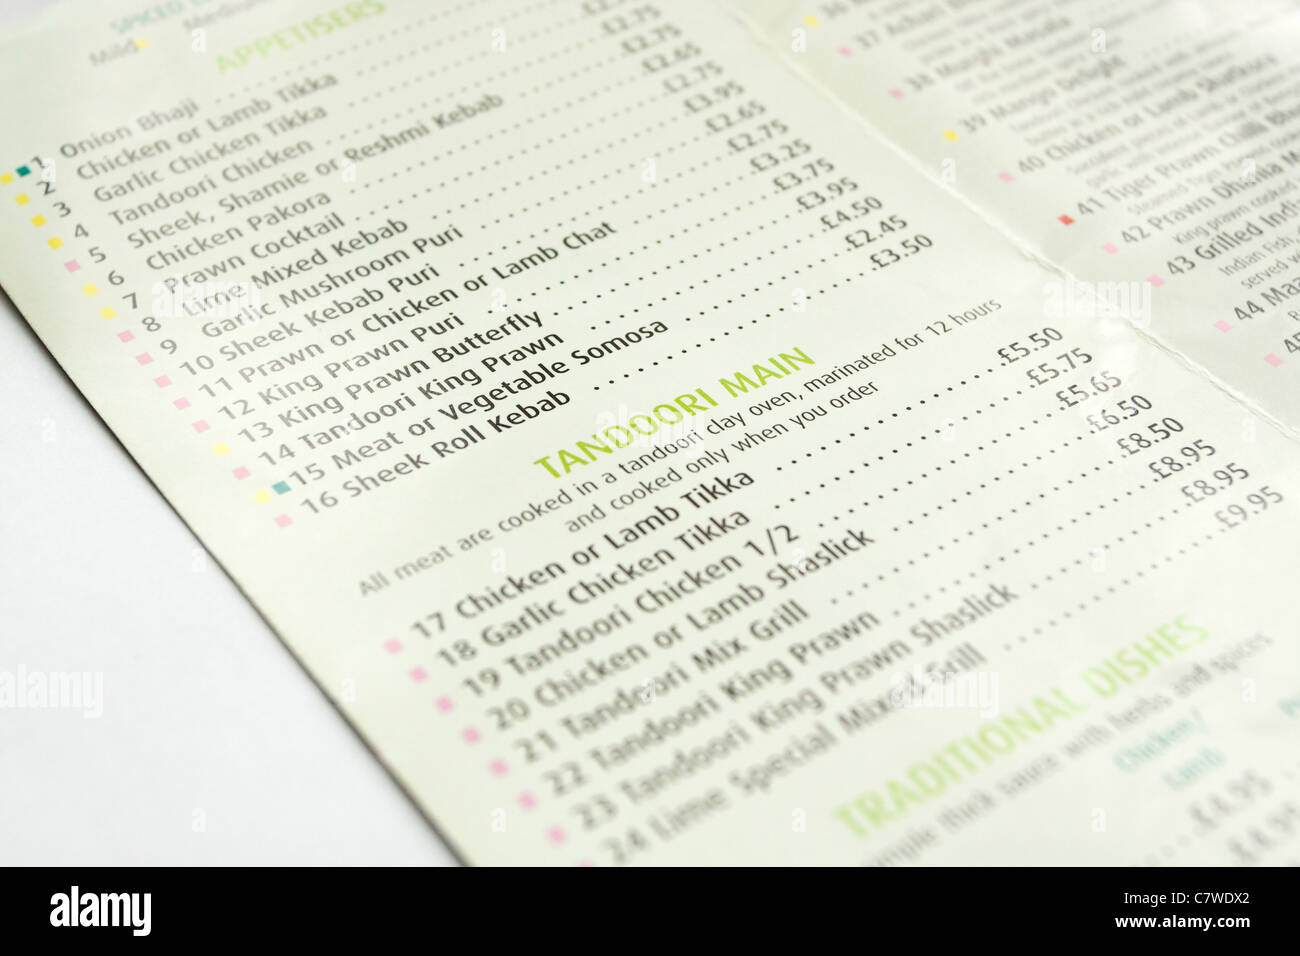 Mild
APPETISERS
1 Onion Bhaji
2 Chicken or Lamb Tikka
3 Garlic Chicken Tikka
4 Tandoori Chicken
5 Sheek, Shamie or Reshmi Kebab £2.75
6 Chicken Pakora £2.65
7 Prawn Cocktail £2.75
8 Lime Mixed Kebab £3.95
9 Garlic Mushroom Puri £2.65
10 Sheek Kebab Puri £2.75
11 Prawn or Chicken or Lamb Chat £3.25
12 King Prawn Puri £3.75
13 King Prawn Butterfly £3.95
14 Tandoori King Prawn £4.50
15 Meat or Vegetable Somosa £2.45
16 Sheek Roll Kebab £3.50
TANDOORI MAIN
All meat are cooked in a tandoori clay oven, marinated for 12 hours
and cooked only when you order
17 Chicken or Lamb Tikka £5.50
18 Garlic Chicken Tikka £5.75
19 Tandoori Chicken 1/2 £5.65
20 Chicken or Lamb Shaslick £6.50
21 Tandoori Mix Grill £8.50
22 Tandoori King Prawn £8.95
23 Tandoori King Prawn Shaslick £8.95
24 Lime Special Mixed Grill £9.95
TRADITIONAL DISHES
thick sauce with herbs and spices
Chicken/
Lamb
£4.95
37
38
39 Mango Delight
40 Chicken or Lamb
41 Tiger Prawn
42 Prawn Dhosila
King prawn cooked
43 Grilled
Indian fish
served
44
45
alamy
Image ID: C7WDX2
www.alamy.com